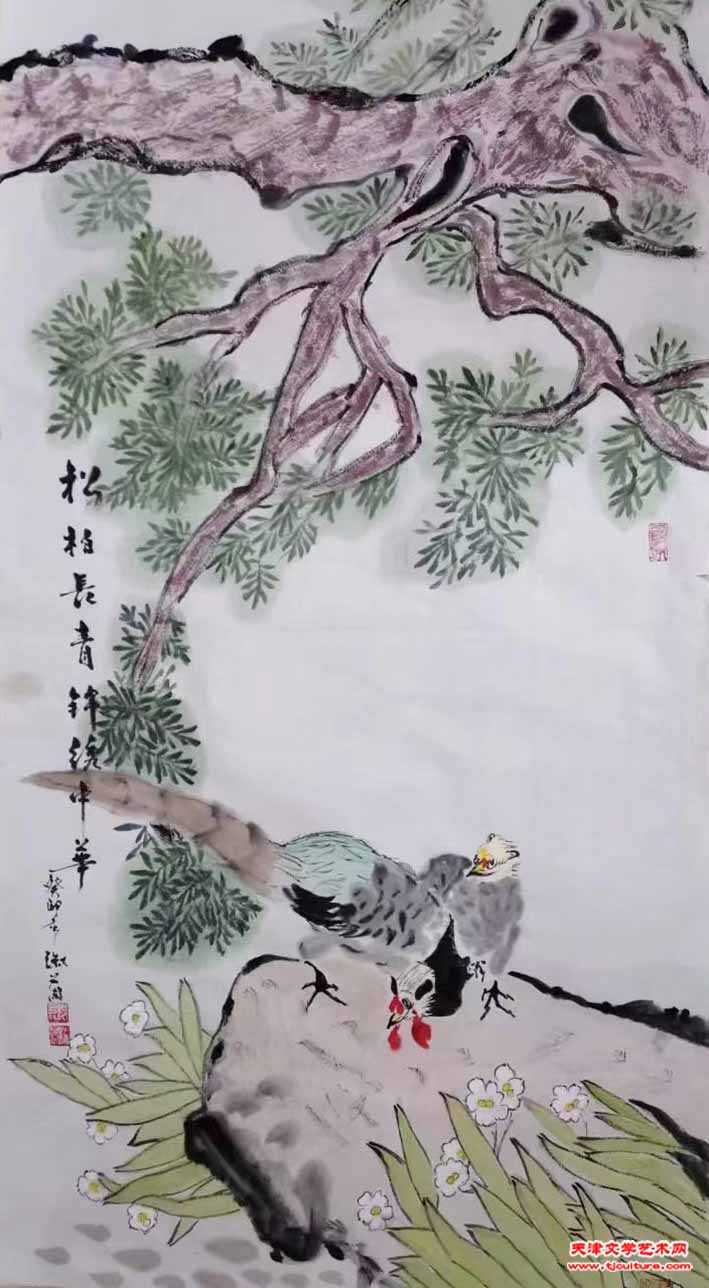 松柏長青錦綉中華
癸卯年
天津文学艺术网
www.tjculture.com